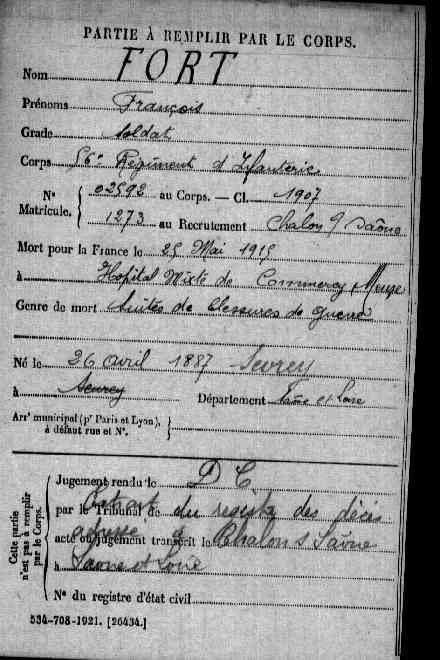 PARTIE À REMPLIR PAR LE CORPS.
Nom FORT
Prénoms François
Grade soldat
Corps 56e Régiment d'Infanterie
N° Matricule. 02592 au Corps. — Cl. 1907
1273 au Recrutement Chalon s/ Saône
Mort pour la France le 25 Mai 1915
à Hopital Mixte de Commercy Meuse
Genre de mort Suites de blessures de guerre
Né le 26 avril 1887 Sevrey
à Département Saône et Loire
Arrt municipal (pr Paris et Lyon),
à défaut rue et N°.
Cette partie n'est pas à remplir par le Corps.
Jugement rendu le D C
par le Tribunal de Extrait du registre des décès
acte ou jugement transcrit le adressé à Chalon s Saône
à Saone et Loire
N° du registre d'état civil
534-708-1921. [26434.]